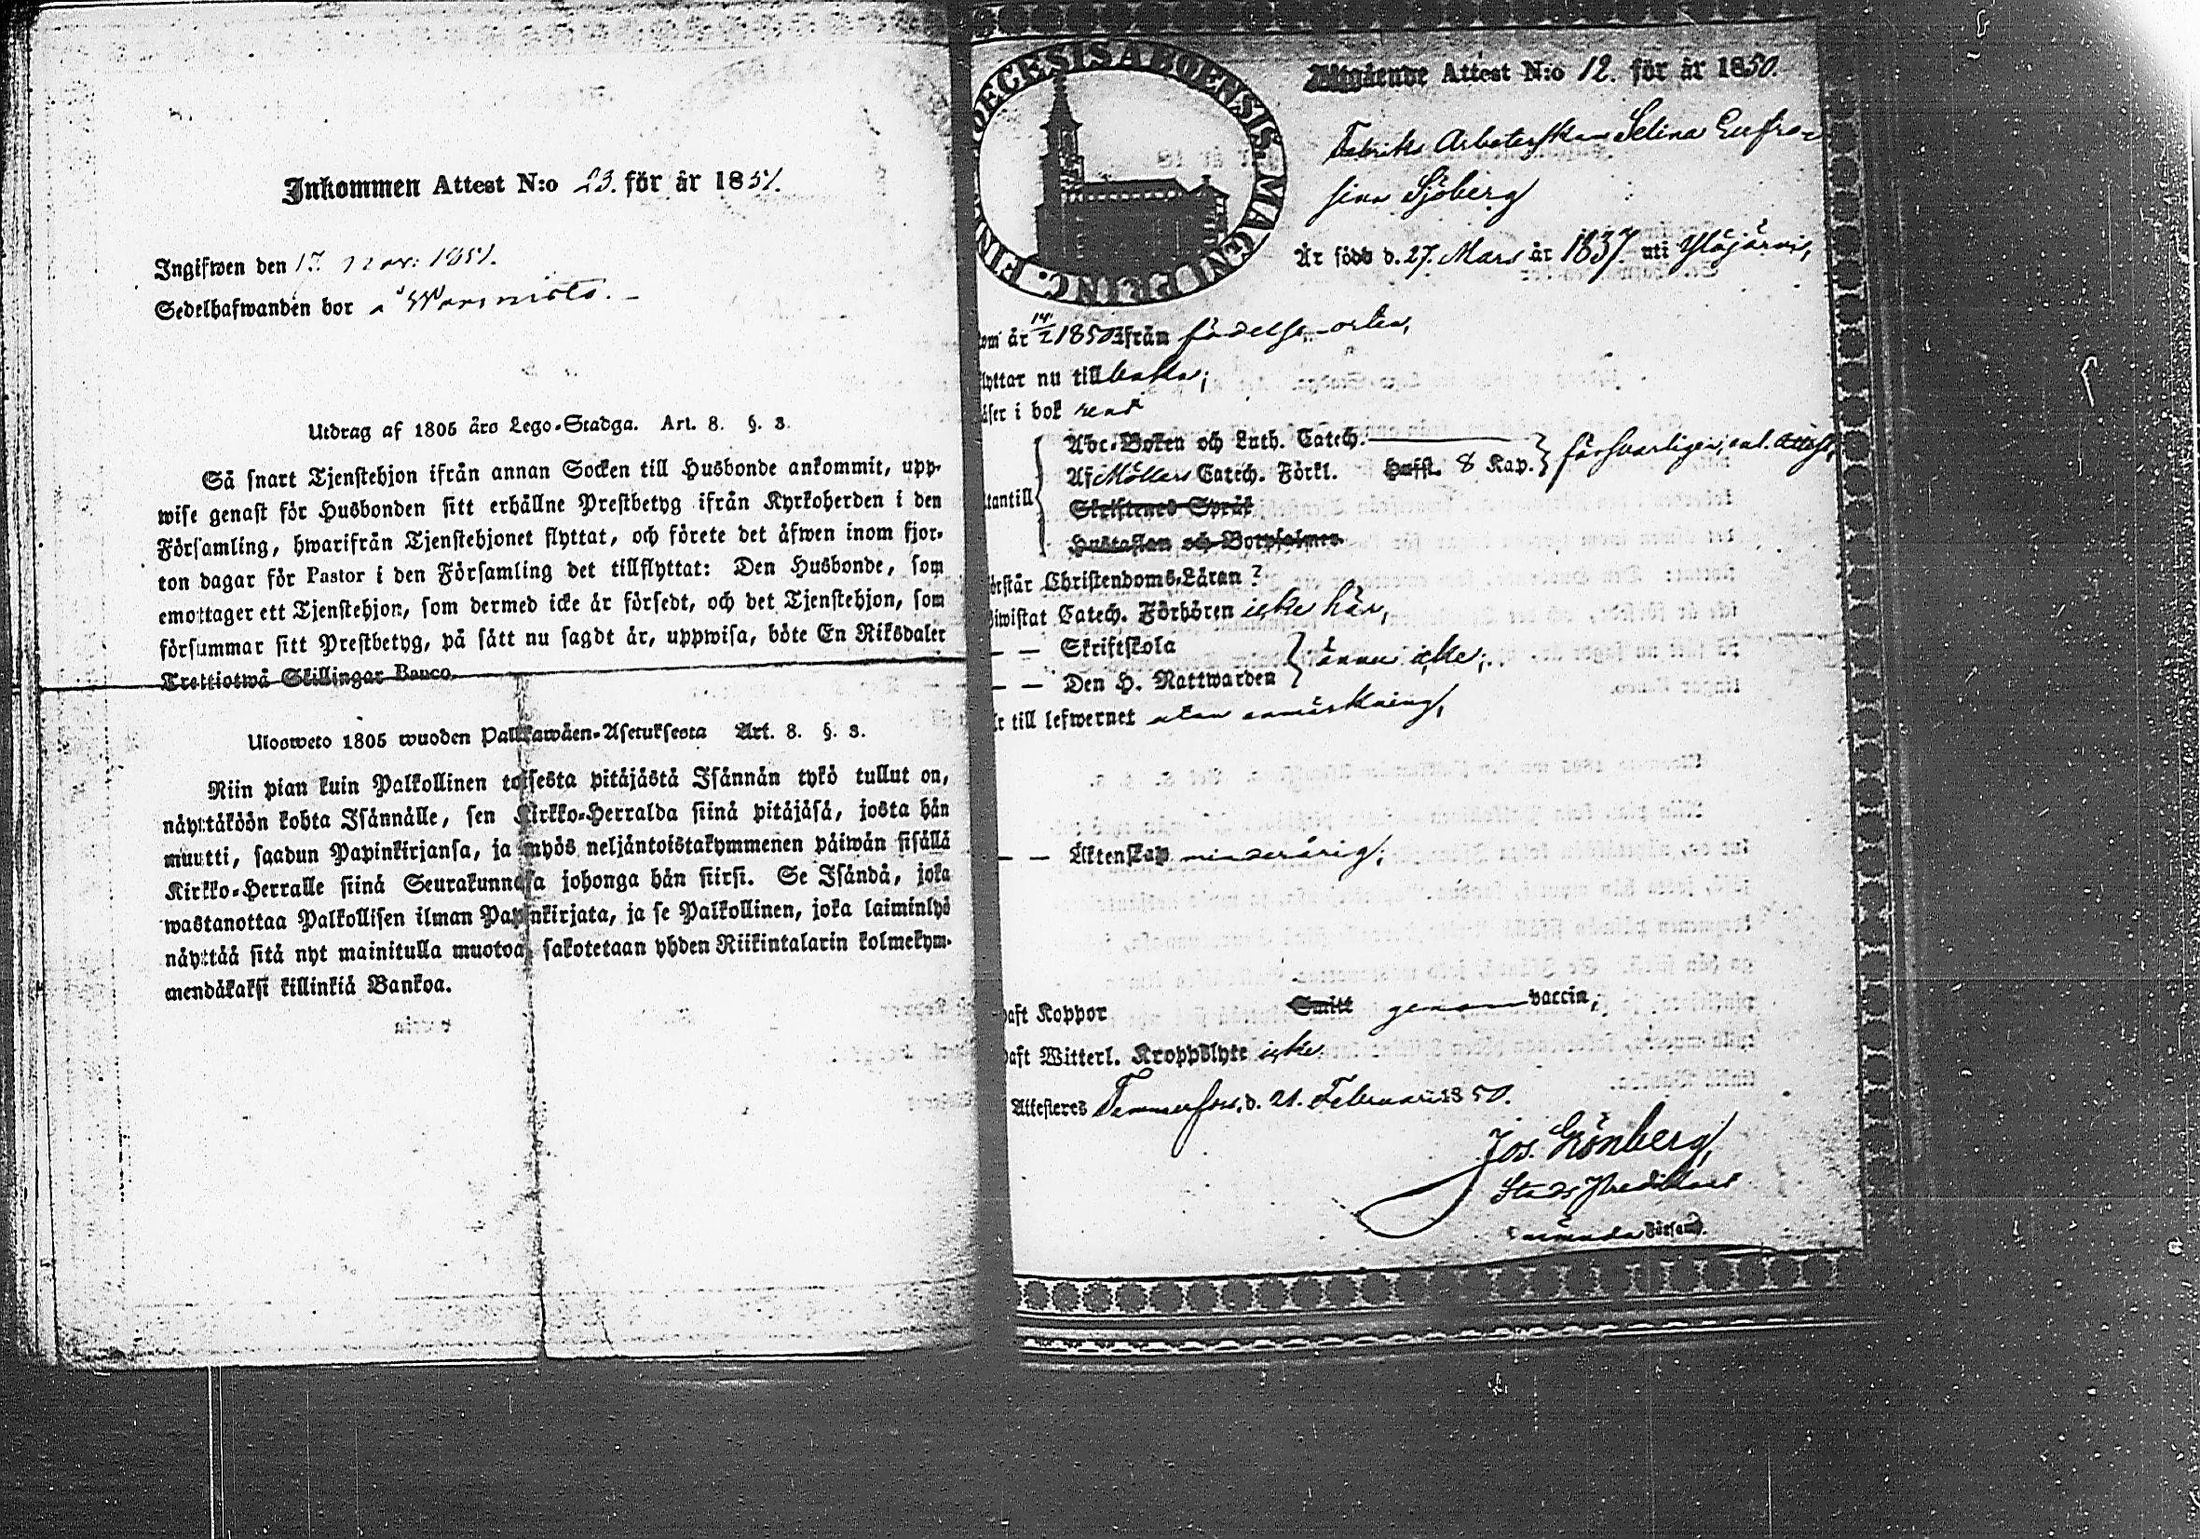 Inkommen Attest N:o 23. för år 1851.
Ingifwen den 17. Nov: 1851.
Sedelhafwanden bor i
Utdrag af 1805 års Lego-Stadga. Art. 8. §. 3.
Så snart Tjenstehjon ifrån annan Socken till Husbonde ankommit, upp-
wise genast för Husbonden sitt erhållne Prestbetyg ifrån Kyrkoherden i den
Församling, hwarifrån Tjenstehjonet flyttat, och förete det äfwen inom fjor-
ton dagar för Pastor i den Församling det tillflyttat: Den Husbonde, som
emottager ett Tjenstehjon, som dermed icke är försedt, och det Tjenstehjon, som
försummar sitt Prestbetyg, på sätt nu sagdt är, uppwisa, böte En Riksdaler
Trettiotwå Skillingar Banco.
Ulosweto 1805 wuoden Palkkawäen-Asetuksesta Art. 8. §. 3.
Niin pian kuin Palkollinen toisesta pitäjästä Isännän tykö tullut on,
näyttäköön kohta Isännälle, sen Kirkko-Herralda siinä pitäjäsä, josta hän
muutti, saadun Papinkirjansa, ja myös neljäntoistakymmenen päiwän sisällä
Kirkko-Herralle siinä Seurakunnasa johonga hän siirsi. Se Isändä, joka
wastanottaa Palkollisen ilman Papinkirjata, ja se Palkollinen, joka laiminlyö
näyttää sitä nyt mainitulla muotoa, sakotetaan yhden Riikintalarin kolmekym-
mendäkaksi killinkiä Bankoa.
DIOECESIS ABOENSIS. MAGNI DU PRINC. FIN
Utgående Attest N:o 12. för år 1850.
Fabriks Arbeterskan Selina Eufro-
sina Sjöberg
Är född d. 27. Mars år 1837 uti Ylöjärvi,
om år 14/2 1850 ifrån födelse-orten,
lyttar nu tillbaka;
äser i bok rent
Abc-Boken och Luth. Catech.
Af Möllers Catech. Förkl. Hufst. 8 Kap. försvarligen, enl. Attest,
tantill
Skriftenes Språk
Hustaflan och Botpsalmer
örstår Christendoms-Läran?
iwistat Catech. Förhören icke här,
— — Skriftskola
— — Den H. Nattwarden ännu icke;
r till lefwernet utan anmärkning,
— — Äktenskap minderårig;
aft Koppor Smitt genom vaccin,
aft Witterl. Kroppslyte icke.
Attesteres Tammerfors, d. 21. Februari 1850.
Jos. Grönberg,
Stads Predikant
Församl.